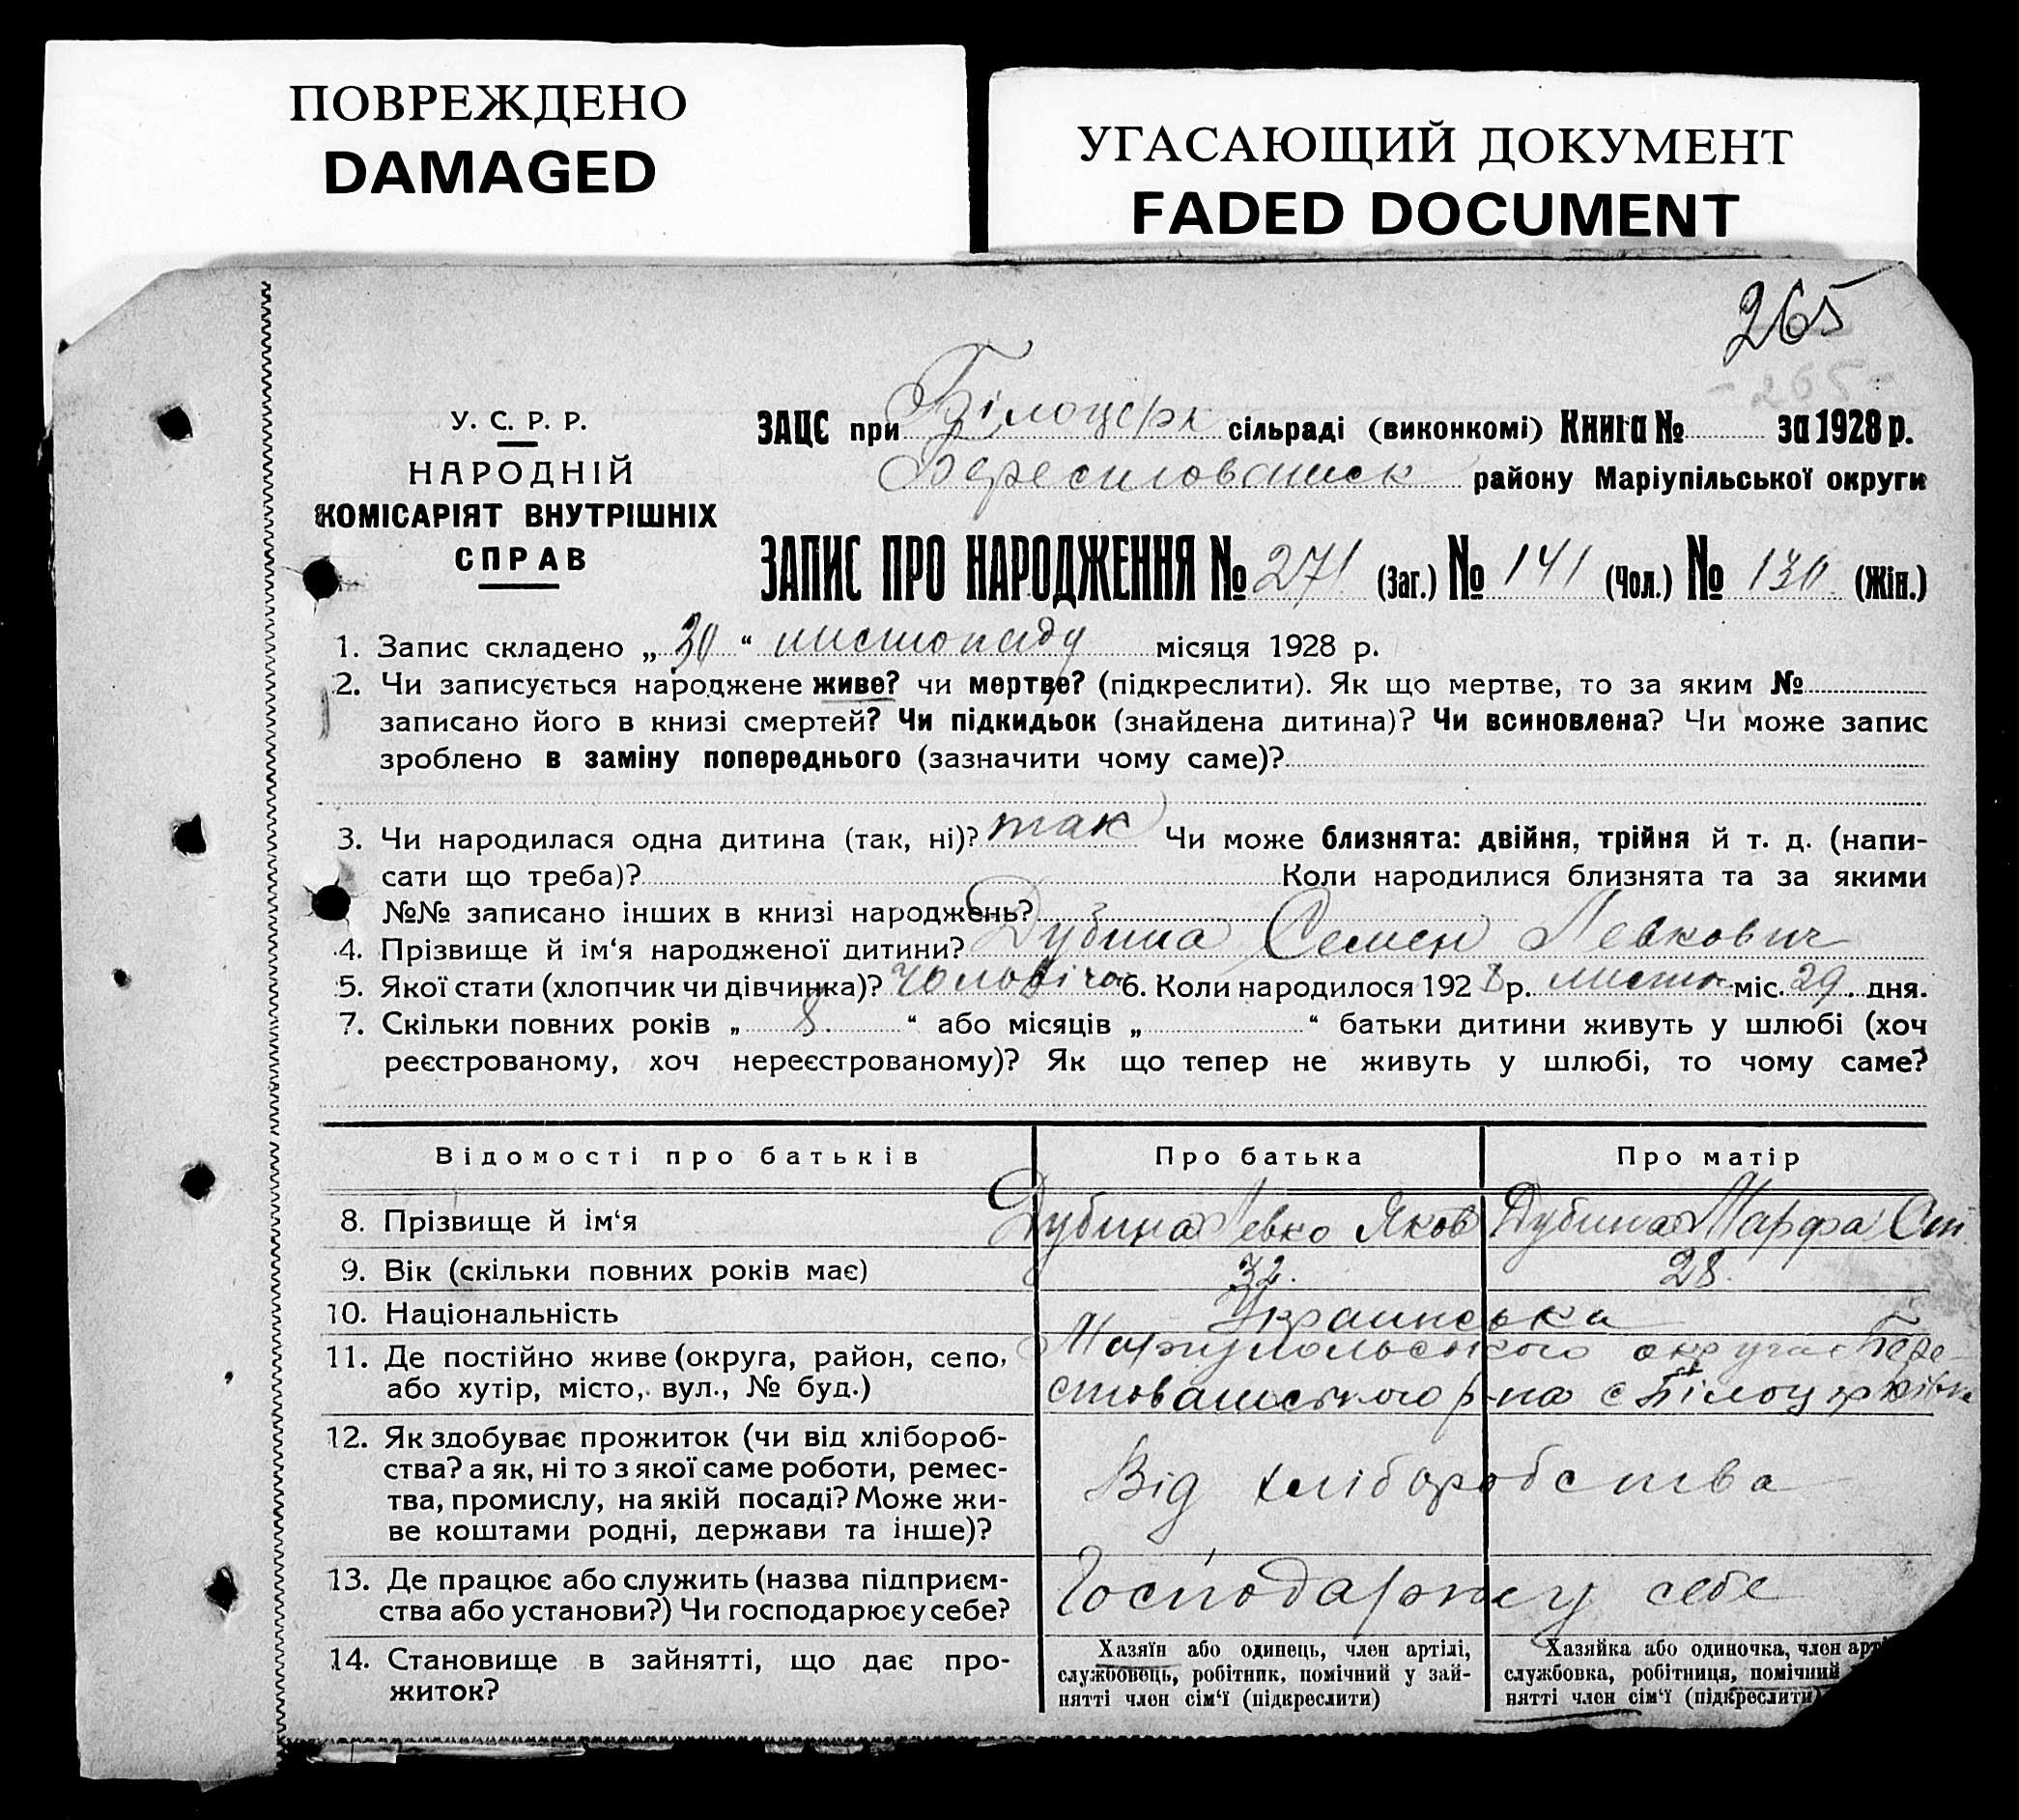 ПОВРЕЖДЕНО
DAMAGED
УГАСАЮЩИЙ ДОКУМЕНТ
FADED DOCUMENT
265
У. С. Р. Р.
НАРОДНІЙ
КОМІСАРІЯТ ВНУТРІШНІХ
СПРАВ
ЗАЦС при Білоцерк сільраді (виконкомі) Книга № за 1928 р.
Берестованськ району Маріупільської округи
ЗАПИС ПРО НАРОДЖЕННЯ № 271 (Заг.) № 141 (Чол.) № 130 (Жін.)
1. Запис складено „ 30 “ листопаду місяця 1928 р.
2. Чи записується народжене живе? чи мертве? (підкреслити). Як що мертве, то за яким №
записано його в книзі смертей? Чи підкидьок (знайдена дитина)? Чи всиновлена? Чи може запис
зроблено в заміну попереднього (зазначити чому саме)?
3. Чи народилася одна дитина (так, ні)? так Чи може близнята: двійня, трійня й т. д. (напи-
сати що треба)? Коли народилися близнята та за якими
№№ записано інших в книзі народжень?
4. Прізвище й ім‘я народженої дитини? Дубина Семен Левкович
5. Якої стати (хлопчик чи дівчинка)? Чоловіча 6. Коли народилося 1928 р. листоп. міс. 29. дня.
7. Скільки повних років „ 8. “ або місяців „ “ батьки дитини живуть у шлюбі (хоч
реєстрованому, хоч нереєстрованому)? Як що тепер не живуть у шлюбі, то чому саме?
Відомості про батьків Про батька Про матір
8. Прізвище й ім‘я Дубина Левко Яков Дубина Марфа Ст.
9. Вік (скільки повних років має) 32. 28.
10. Національність Украинська
11. Де постійно живе (округа, район, село, Маріупольського округа Бере-
або хутір, місто, вул., № буд.) стованського р-на с Білоцерківка
12. Як здобуває прожиток (чи від хлібороб-
ства? а як, ні то з якої саме роботи, ремес-
тва, промислу, на якій посаді? Може жи-
ве коштами родні, держави та інше)?
Від хліборобства
13. Де працює або служить (назва підприєм-
ства або установи?) Чи господарює у себе?
Господаржу себе
14. Становище в зайнятті, що дає про-
житок?
Хазяїн або одинець, член артілі,
службовець, робітник, помічний у зай-
нятті член сім‘ї (підкреслити)
Хазяйка або одиночка, член арті
службовка, робітниця, помічний
нятті член сім‘ї (підкреслити)